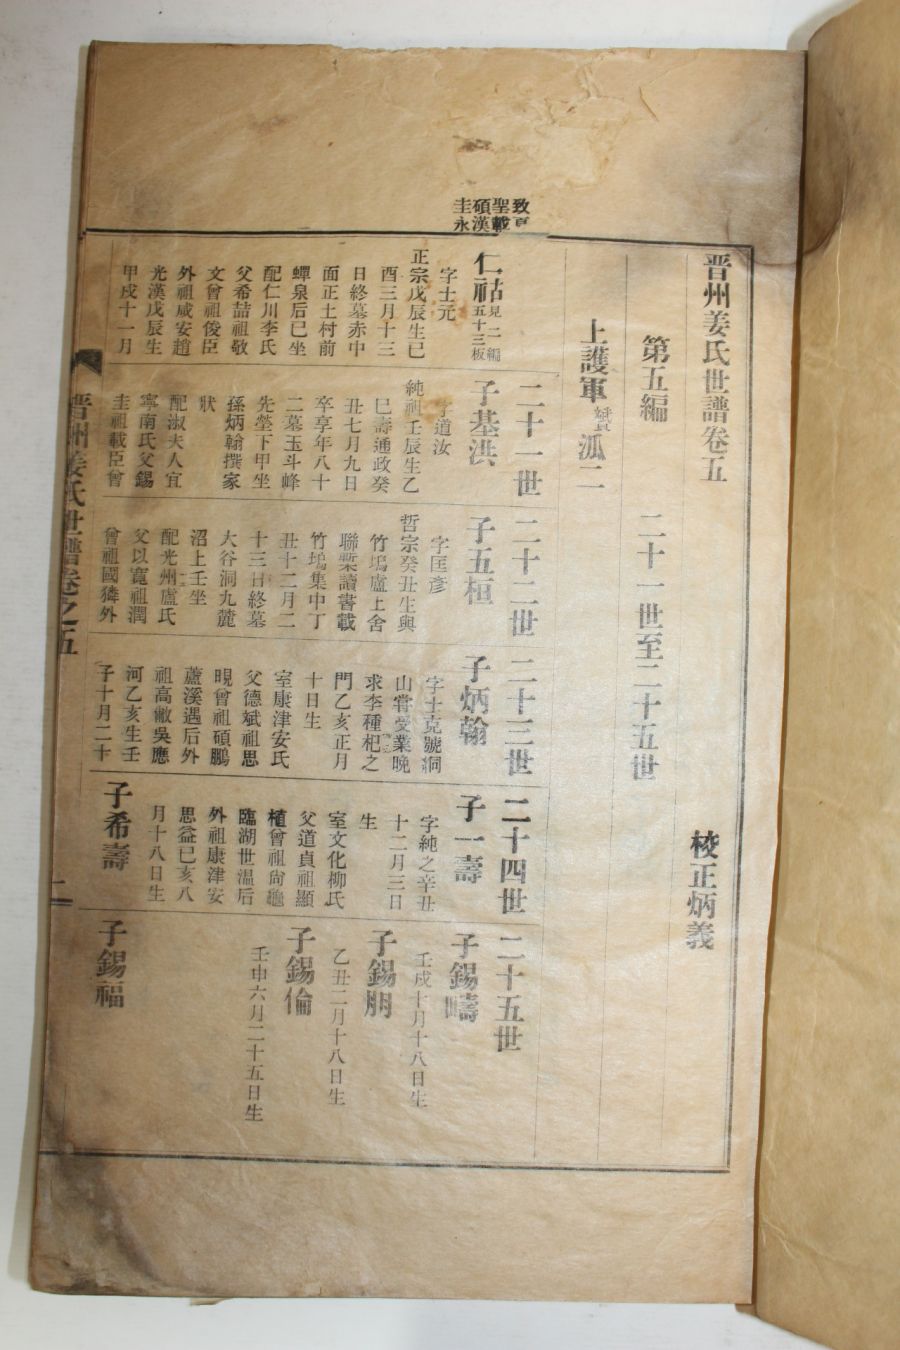 致夏
聖載
碩漢
圭永
晋州姜氏世譜卷五
校正炳義
第五編
二十一世至二十五世
上護軍
派二
仁祜見二編五十三板
字士元
正宗戊辰生己
酉三月十三
日終墓赤中
面正土村前
蟬泉后巳坐
配仁川李氏
父希喆祖敬
文曾祖俊臣
外祖咸安趙
光漢戊辰生
甲戌十一月
二十一世
子基洪
字道汝
純祖壬辰生乙
巳壽通政癸
丑七月九日
卒享年八十
二墓玉斗峰
先塋下甲坐
孫炳翰撰家
狀
配淑夫人宜
寧南氏父錫
圭祖載臣曾
二十二世
子五桓
字匡彦
哲宗癸丑生與
竹塢盧上舍
聯槧讀書載
竹塢集中丁
丑十二月二
十三日終墓
大谷洞九麓
沼上壬坐
配光州盧氏
父以寬祖潤
曾祖國獜外
二十三世
子炳翰
字士克號絅
山嘗受業晩
求李種杞之
門乙亥正月
十日生
室康津安氏
父德斌祖思
晛曾祖碩鵬
蘆溪遇后外
祖高敞吳應
河乙亥生壬
子十月二十
二十四世
子一壽
字純之辛丑
十二月三日
生
室文化柳氏
父道貞祖顯
植曾祖尙龜
臨湖世溫后
外祖康津安
思益己亥八
月十八日生
子希壽
二十五世
子錫疇
壬戌十月十八日生
子錫朋
乙丑二月十八日生
子錫倫
壬申六月二十五日生
子錫福
晋州姜氏世譜卷之五
一